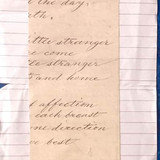 the day,
rth.
ittle stranger
e come
le stranger
t and home
d affection
each breast
ne direction
ve best